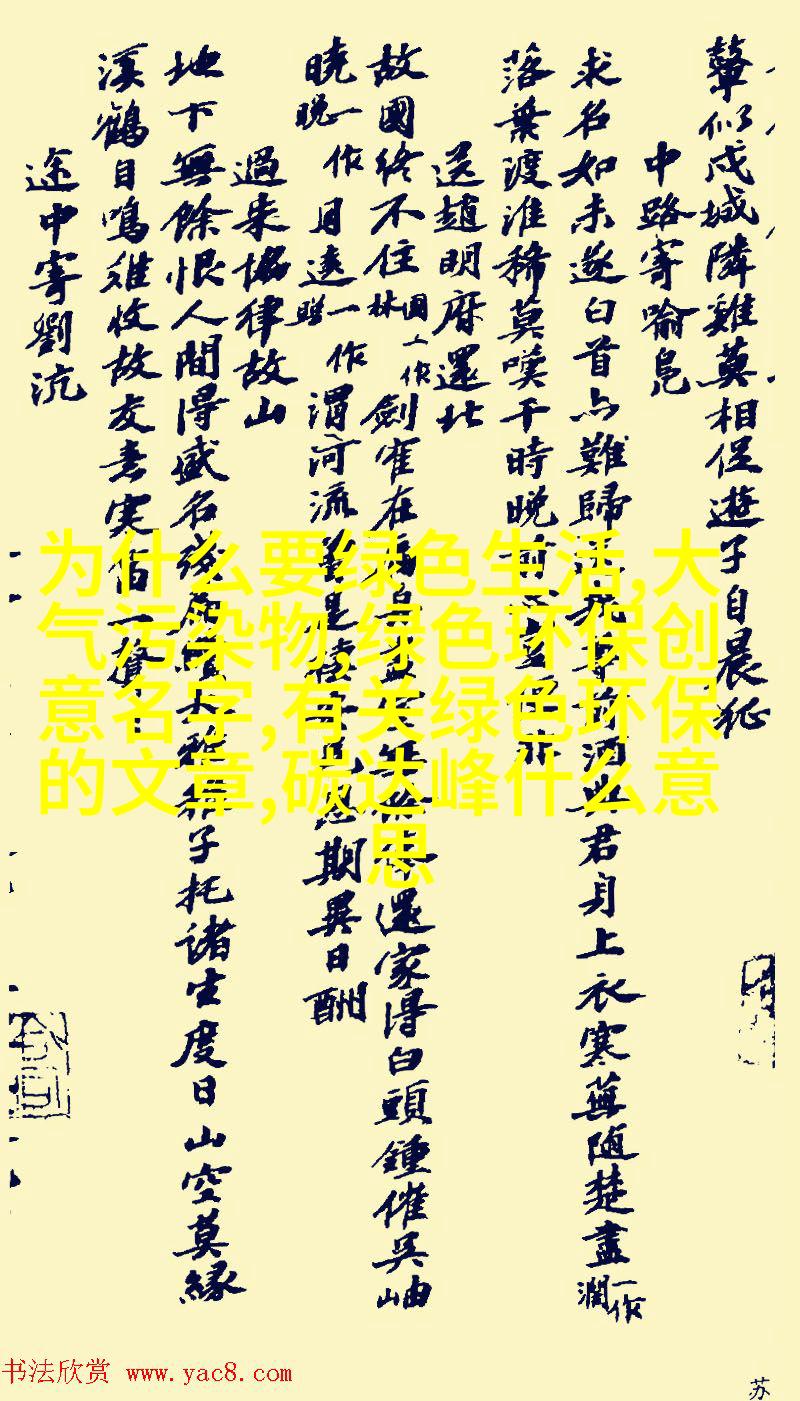 鼙似戍城隣雞莫相促遊子自晨征
中路寄喻鳧
求名如未遂白首亦難歸
酒與君身上衣寒蕪隨楚盡一作
濶
落葉渡淮稀莫嘆干時晚前
送趙明府還北
故國終不住國一作
林
劍
還家得白頭鍾催吳岫
曉一作
晚
月遠一作
渭河流
期異日酬
過朱協律故山
地下無餘恨人間得盛名殘
子托諸生度日山空莫緣
溪鶴自鳴雖收故友書
途中寄劉沆
为什么要绿色生活,大
气污染物,绿色环保创
意名字,有关绿色环保
的文章,碳达峰什么意
思
书法欣赏 www.yac8.com
苏